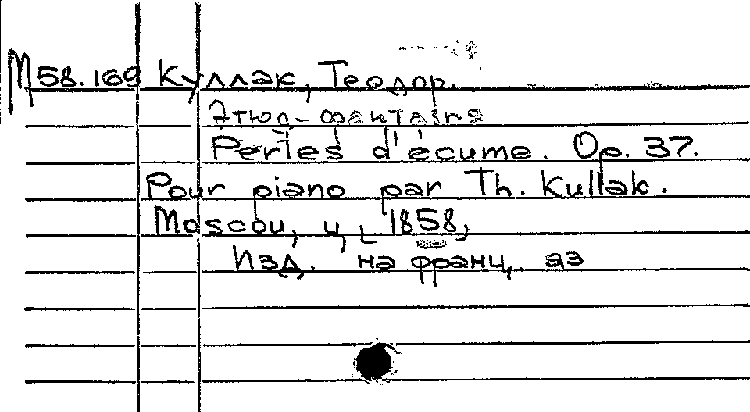 М58.169 Куллак, Теодор.
Этюд-фантазия
Perles d'écume. Op. 37.
Pour piano par Th. Kullak.
Moscou, ц, 1858,
Изд. на франц. яз